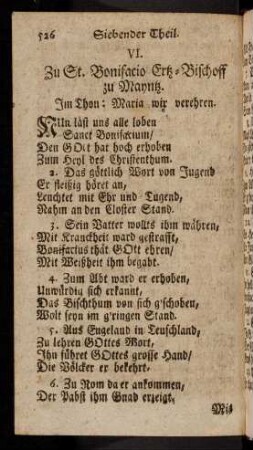 526 Siebender Theil.
VI.
Zu St. Bonifacio Ertz-Bischoff
zu Mayntz.
Im Thon: Maria wir verehren.
NUn läst uns alle loben
Sanct Bonifacium/
Den GOtt hat hoch erhoben
Zum Heyl des Christenthum.
2. Das göttlich Wort von Jugend
Er fleißig höret an,
Leuchtet mit Ehr und Tugend,
Nahm an den Closter Stand.
3. Sein Vatter wollts ihm währen,
Mit Kranckheit ward gestrafft,
Bonifacius thät GOtt ehren/
Mit Weißheit ihm begabt.
4. Zum Abt ward er erhoben,
Unwürdig sich erkannt,
Das Bischthum von sich g'schoben,
Wolt seyn im g'ringen Stand.
5. Aus Engeland in Teuschland,
Zu lehren GOttes Wort,
Ihn führet GOttes grosse Hand/
Die Völcker er bekehrt.
6. Zu Rom da er ankommen,
Der Pabst ihm Gnad erzeigt,
Mit